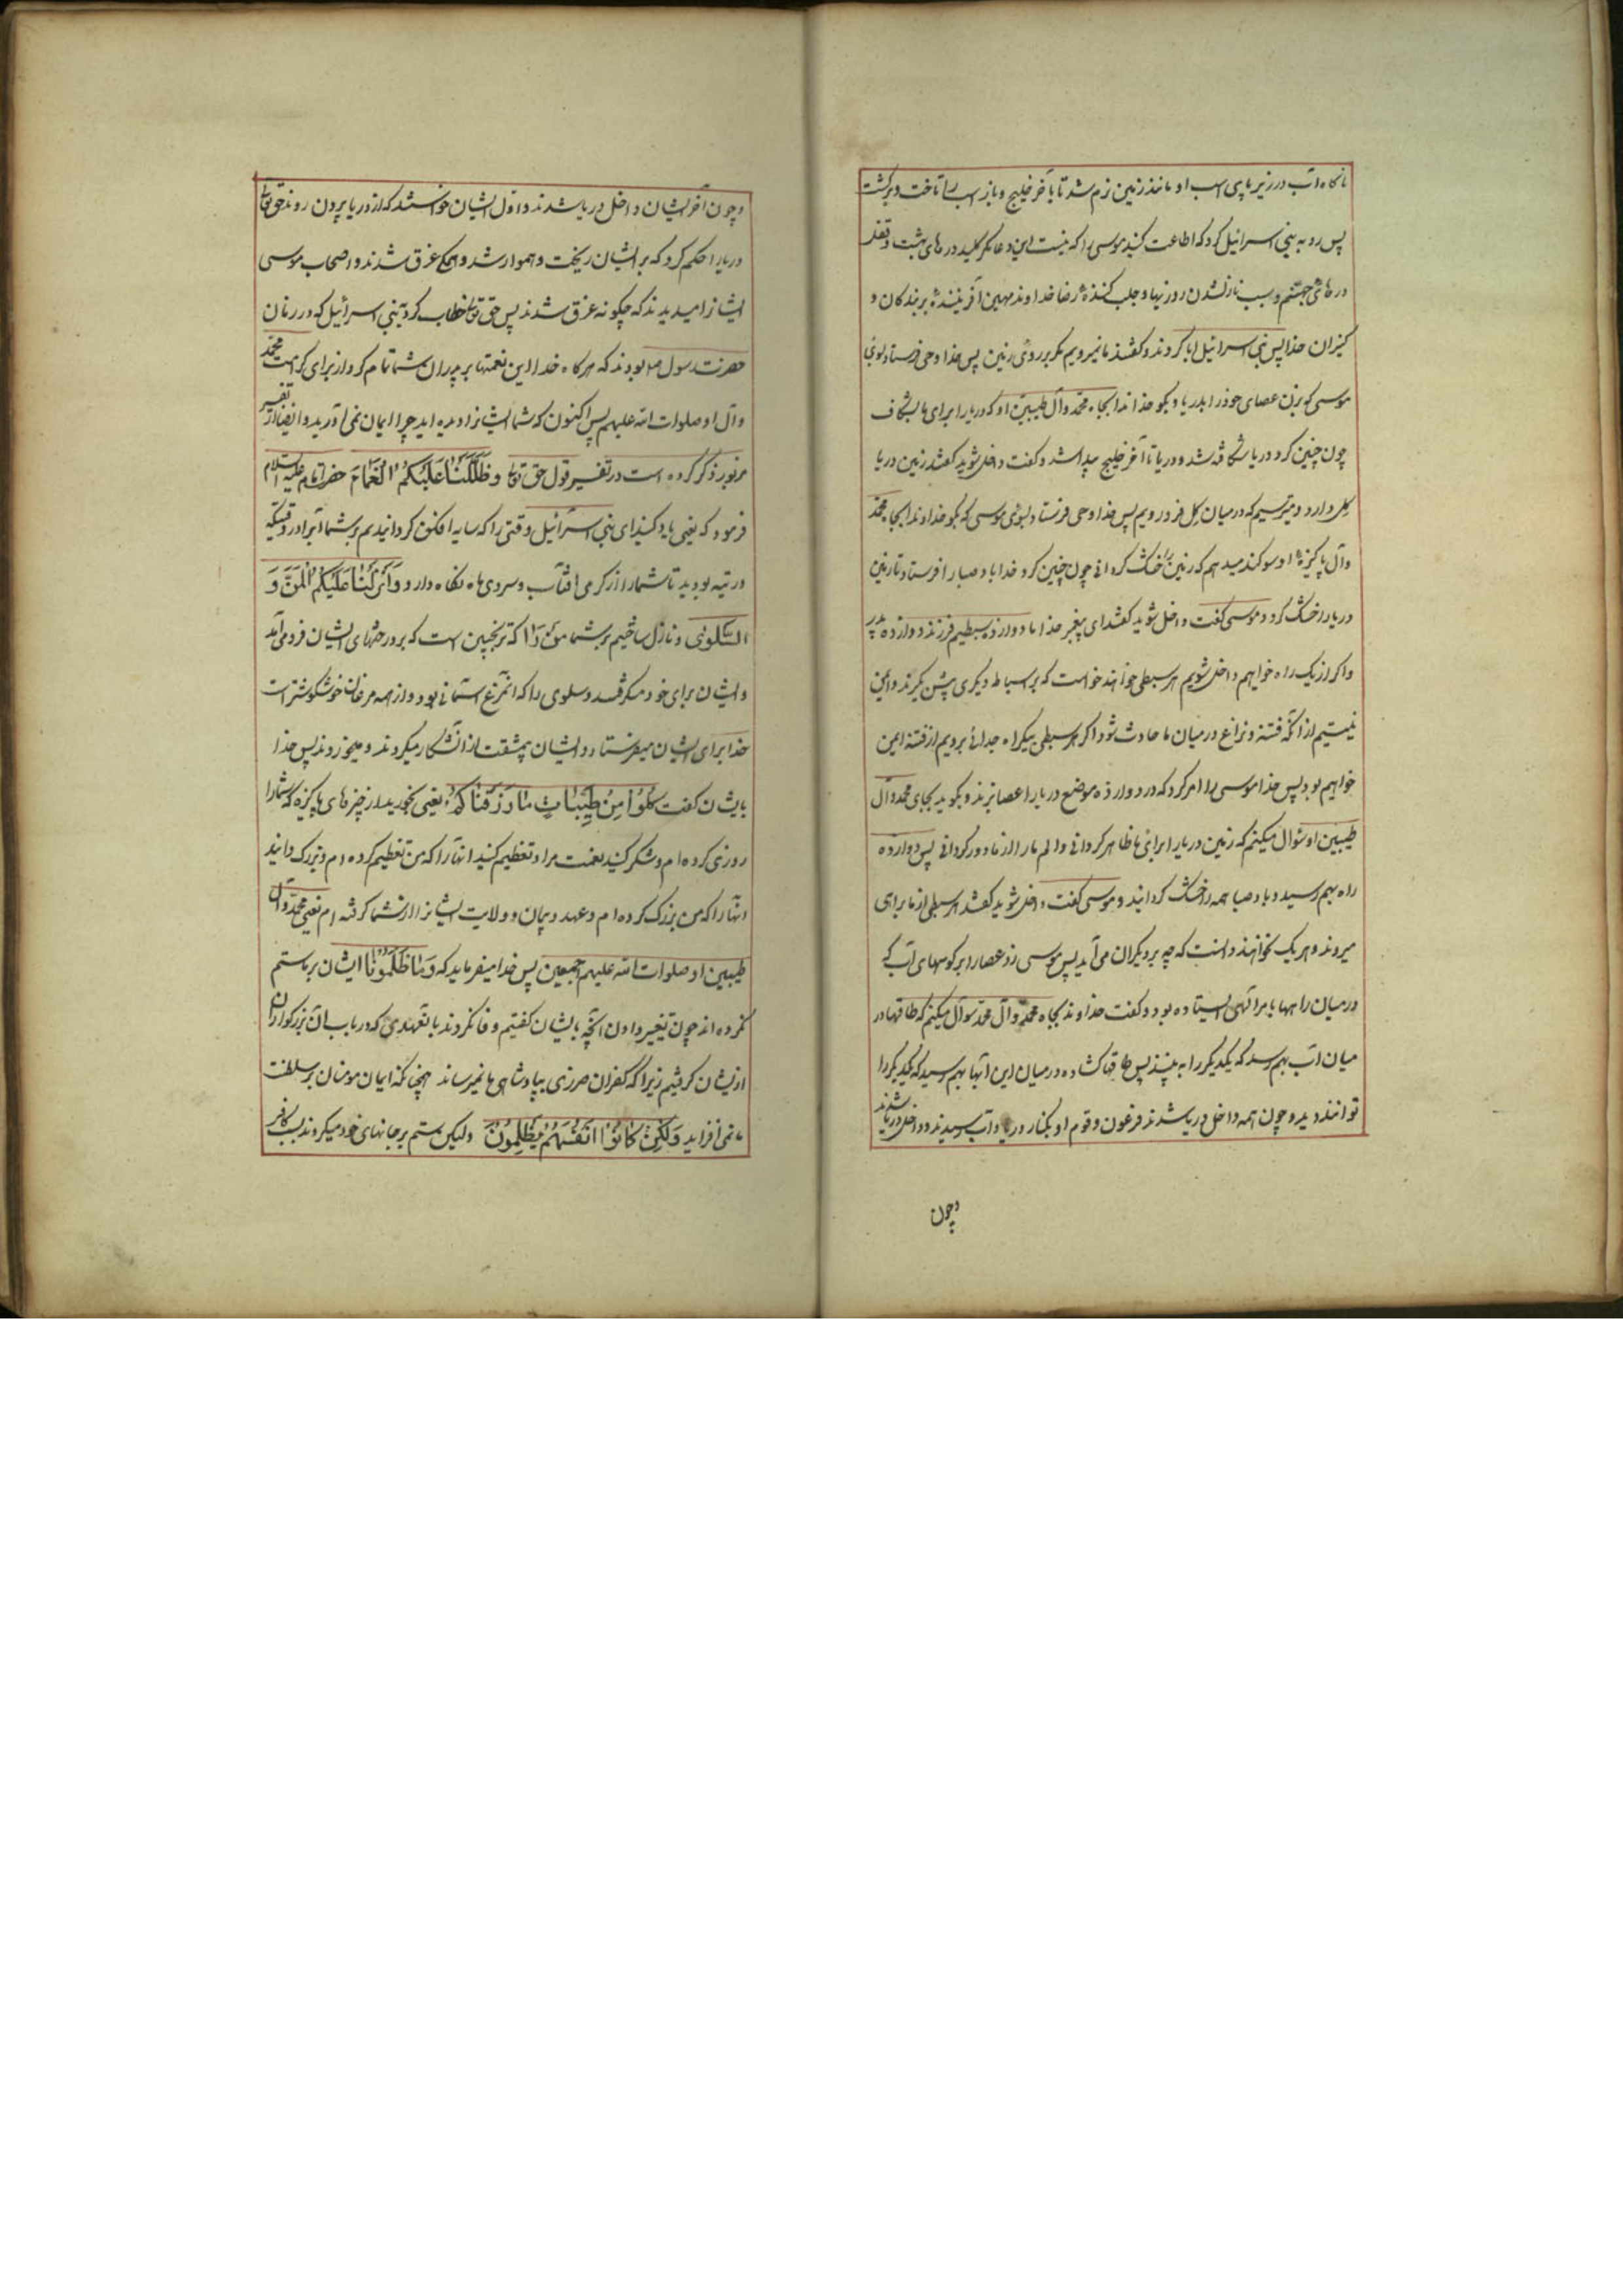 ناگاه آب در زیر پای اسب او مانند زمین نرم شد تا بآخر خلیج و باز اسب را تاخت و برگشت
پس رو به بنی اسرائیل کرد که اطاعت کنید موسی را که نیست این دعا مگر کلید درهای بهشت و قفل
درهای جهنم و سبب نازل شدن روزیها و جلب کننده رضا خداوند مهین آفریننده بر بندگان و
کنیزان خدا پس بنی اسرائیل ابا کردند و گفتند ما نمیرویم مگر بر روی زمین پس خدا وحی فرستاد بوی
موسی که بزن عصای خود را بدریا و بگو خداوندا بجاه محمد و آل طیبین او که دریا را برای ما بشکاف
چون چنین کرد دریا شکافته شد و دریا تا آخر خلیج پیدا شد و گفت داخل شوید گفتند زمین دریا
گل دارد و میترسیم که در میان گل فرو رویم پس خدا وحی فرستاد بوی موسی که بگو خداوندا بجاه محمد
و آل پاکیزه او سوگند میدهم که زمین را خشک گردانی چون چنین کرد خدا باد صبا را فرستاد تا زمین
دریا را خشک کرد و موسی گفت داخل شوید گفتند ای پیغمبر خدا ما دوازده سبطیم فرزند دوازده پدر
و اگر از یک راه خواهیم داخل شویم هر سبطی خواهند خواست که بر اسباط دیگری پیش گیرند و ایمن
نیستیم از آنکه فتنه و نزاع در میان ما حادث شود اگر هر سبطی بیکراه جدائی برویم از فتنه ایمن
خواهیم بود پس خدا موسی را امر کرد که در دوازده موضع دریا را عصا بزند و بگوید بجاه محمد و آل
طیبین او سؤال میکنم که زمین دریا را برای ما ظاهر گردانی و الم ما را از ما دور گردانی پس دوازده
راه بهم رسید و باد صبا همه را خشک گردانید و موسی گفت داخل شوید گفتند هر سبطی از ما براهی
میروند و هر یک نخواهند دانست که چه بر دیگران می آید پس موسی زد عصا را بر کوههای آب که
در میان راهها بامر الهی ایستاده بود و گفت خداوندا بجاه محمد و آل محمد سؤال میکنم که طاقها در
میان آب بهم رسد که یکدیگر را به بینند پس طاقها گشاده در میان این آبها بهم رسید که یکدیگر را
توانند دید و چون همه داخل دریا شدند فرعون و قوم او بکنار دریا و آب رسیدند و داخل دریا شدند
و چون
و چون آخر ایشان داخل دریا شدند و اول ایشان خواستند که از دریا بیرون روند حق تعالی
دریا را حکم کرد که بر ایشان ریخت و هموار شد و همگی غرق شدند و اصحاب موسی
ایشانرا میدیدند که چگونه غرق شدند پس حق تعالی خطاب کرد به بنی اسرائیل که در زمان
حضرت رسول ص بودند که هر گاه خدا این نعمتها بر پدران شما تمام کرد از برای کرامت محمد
و آل او صلوات الله علیهم پس اکنون که شما ایشانرا دیده اید چرا ایمان نمی آورید و ایضا از تفسیر
مزبور ذکر کرده است در تفسیر قول حق تعالی وَظَلَّلْنَا عَلَيْكُمُ الْغَمَامَ حضرت امام علیه السلام
فرمود که یعنی یاد کنید ای بنی اسرائیل وقتی را که سایه افکن گردانیدیم بر شما ابر را در وقتیکه
در تیه بودید تا شما را از گرمی آفتاب و سردی ماه نگاه دارد وَأَنْزَلْنَا عَلَيْكُمُ الْمَنَّ وَ
السَّلْوَى و نازل ساختیم بر شما من را که ترنجبین است که بر درختهای ایشان فرود می آید
و ایشان برای خود میگرفتند و سلوی را که آن مرغ آسمانی بود و از همه مرغان خوشگوشتر است
خدا برای ایشان میفرستاد و ایشان بیمشقت از آن شکار میکردند و میخوردند پس خدا
بایشان گفت كُلُوا مِنْ طَيِّبَاتِ مَا رَزَقْنَاكُمْ یعنی بخورید از چیزهای پاکیزه که شما را
روزی کرده ام و شکر کنید نعمت مرا و تعظیم کنید آنها را که من تعظیم کرده ام و بزرگ دانید
آنها را که من بزرگ کرده ام و عهد و پیمان و ولایت ایشانرا از شما گرفته ام یعنی محمد و آل
طیبین او صلوات الله علیهم اجمعین پس خدا میفرماید که وَمَا ظَلَمُونَا ایشان بر ما ستم
نکرده اند چون تغییر دادن آنچه بایشان گفتیم و وفا نکردند با تعهدی که در باب آن بزرگواران
از ایشان گرفتیم زیرا که کفران ضرری بپادشاهی ما نمیرساند همچنانکه ایمان مومنان بر سلطنت
ما نمی افزاید وَلَكِنْ كَانُوا أَنْفُسَهُمْ يَظْلِمُونَ ولیکن ستم بر جانهای خود میکردند بسبب کافر